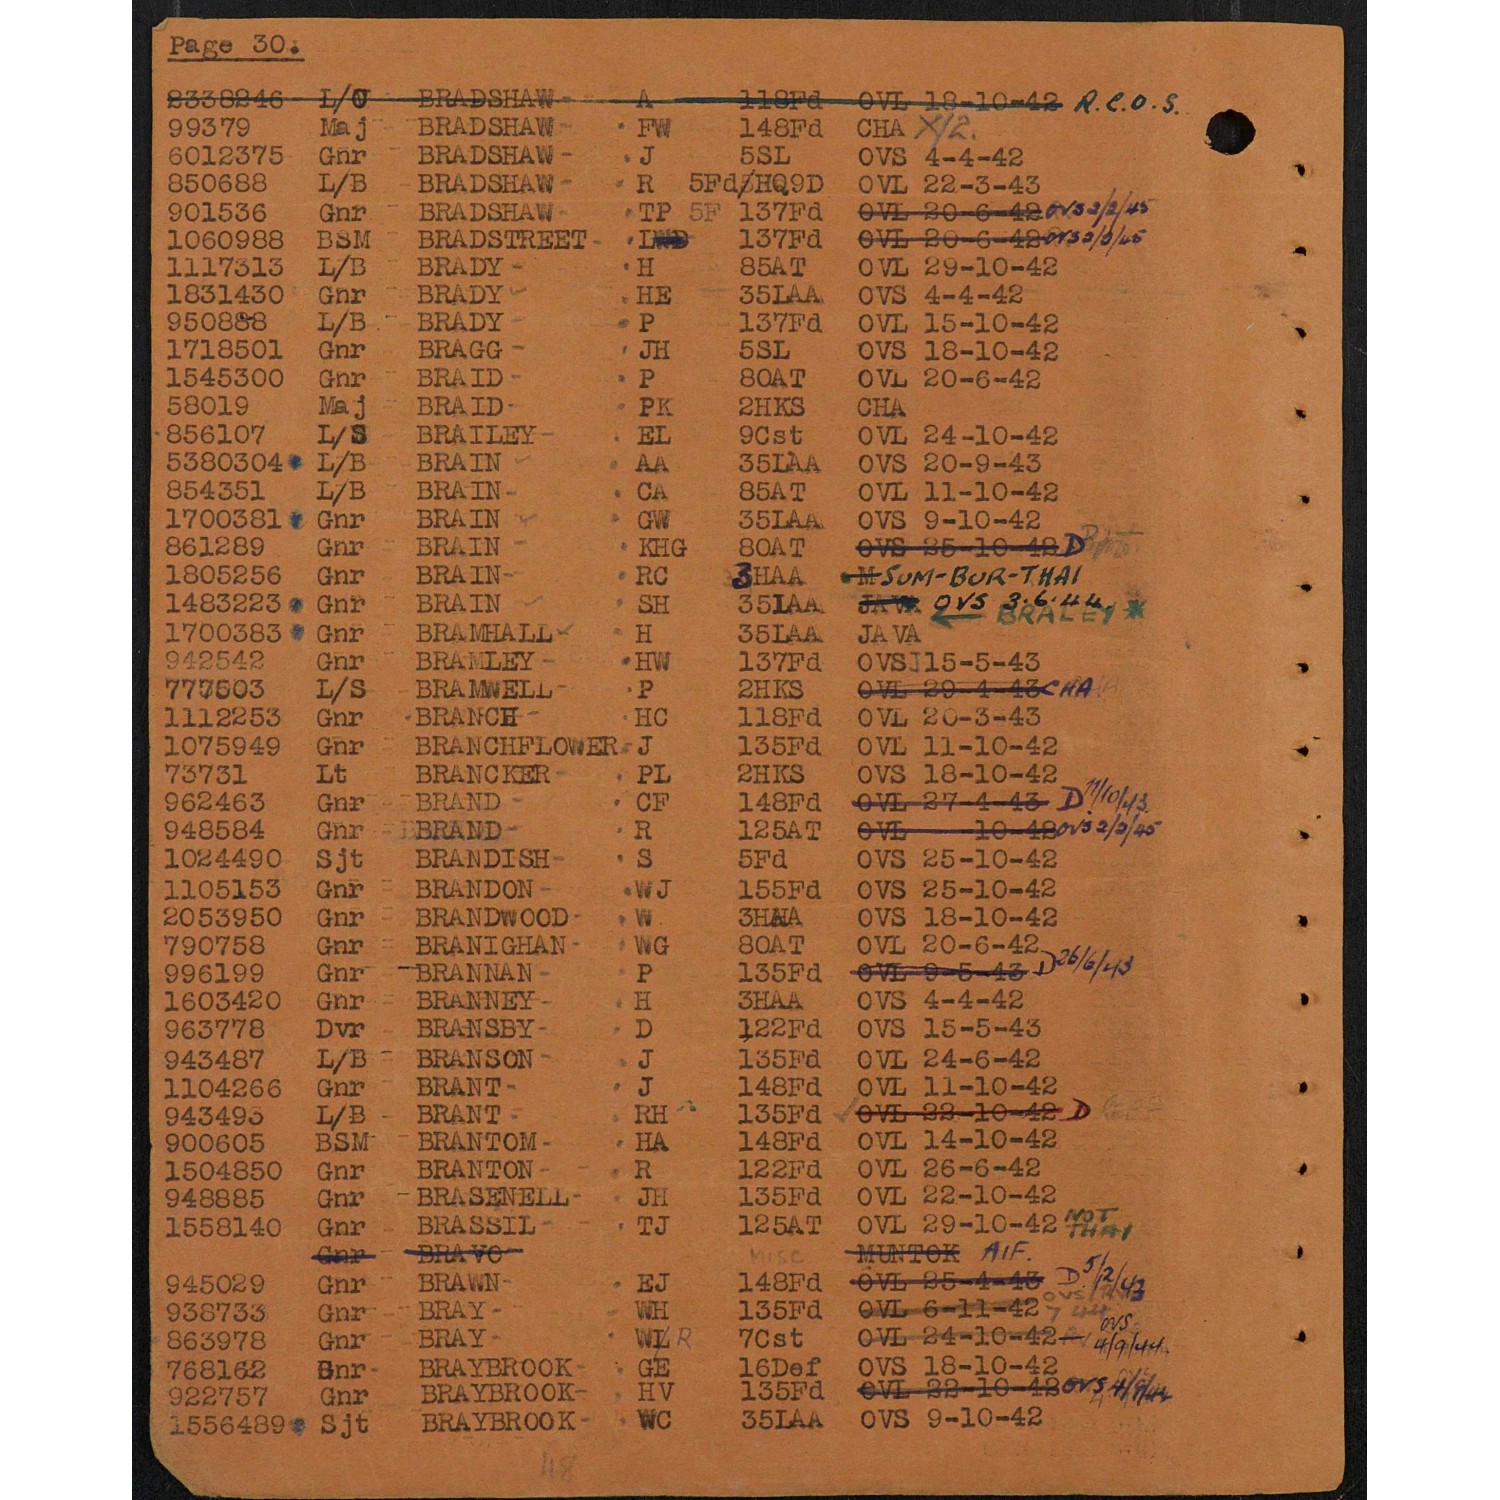 Page 30.
2338246 L/C BRADSHAW A 118Fd OVL 18-10-42 R.C.O.S.
99379 Maj BRADSHAW FW 148Fd CHA X/2.
6012375 Gnr BRADSHAW J 5SL OVS 4-4-42
850688 L/B BRADSHAW R 5Fd/HQ9D OVL 22-3-43
901536 Gnr BRADSHAW TP 5F 137Fd OVL 20-6-42 OVS 2/2/45
1060988 BSM BRADSTREET 137Fd OVL 20-6-42 OVS 2/2/45
1117313 L/B BRADY H 85AT OVL 29-10-42
1831430 Gnr BRADY HE 35LAA OVS 4-4-42
950888 L/B BRADY P 137Fd OVL 15-10-42
1718501 Gnr BRAGG JH 5SL OVS 18-10-42
1545300 Gnr BRAID P 80AT OVL 20-6-42
58019 Maj BRAID PK 2HKS CHA
856107 L/S BRAILEY EL 9Cst OVL 24-10-42
5380304 L/B BRAIN AA 35LAA OVS 20-9-43
854351 L/B BRAIN CA 85AT OVL 11-10-42
1700381 Gnr BRAIN GW 35LAA OVS 9-10-42
861289 Gnr BRAIN KHG 80AT OVS 25-10-42 D
1805256 Gnr BRAIN RC 3HAA M SUM-BUR-THAI
1483223 Gnr BRAIN SH 35LAA JAVA OVS 3.6.44
← BRALEY *
1700383 Gnr BRAMHALL H 35LAA JAVA
942542 Gnr BRAMLEY HW 137Fd OVSJ15-5-43
777503 L/S BRAMWELL P 2HKS OVL 29-4-43 CHA
1112253 Gnr BRANCH HC 118Fd OVL 20-3-43
1075949 Gnr BRANCHFLOWER J 135Fd OVL 11-10-42
73731 Lt BRANCKER PL 2HKS OVS 18-10-42
962463 Gnr BRAND CF 148Fd OVL 27-4-43 D 11/10/43
948584 Gnr BRAND R 125AT OVL 10-42 OVS 2/2/45
1024490 Sjt BRANDISH S 5Fd OVS 25-10-42
1105153 Gnr BRANDON WJ 155Fd OVS 25-10-42
2053950 Gnr BRANDWOOD W 3HAA OVS 18-10-42
790758 Gnr BRANIGHAN WG 80AT OVL 20-6-42
996199 Gnr BRANNAN P 135Fd OVL 9-5-43 D 26/6/43
1603420 Gnr BRANNEY H 3HAA OVS 4-4-42
963778 Dvr BRANSBY D 122Fd OVS 15-5-43
943487 L/B BRANSON J 135Fd OVL 24-6-42
1104266 Gnr BRANT J 148Fd OVL 11-10-42
943493 L/B BRANT RH 135Fd OVL 22-10-42 D
900605 BSM BRANTOM HA 148Fd OVL 14-10-42
1504850 Gnr BRANTON R 122Fd OVL 26-6-42
948885 Gnr BRASENELL JH 135Fd OVL 22-10-42
1558140 Gnr BRASSIL TJ 125AT OVL 29-10-42 NOT THAI
Gnr BRAVO MISC MUNTOK AIF.
945029 Gnr BRAWN EJ 148Fd OVL 25-4-43 D 5/2/43
938733 Gnr BRAY WH 135Fd OVL 6-11-42 OVS 7 44
863978 Gnr BRAY WL R 7Cst OVL 24-10-42 OVS 4/9/44
768162 Gnr BRAYBROOK GE 16Def OVS 18-10-42
922757 Gnr BRAYBROOK HV 135Fd OVL 22-10-42 OVS 4/9/44
1556489 Sjt BRAYBROOK WC 35LAA OVS 9-10-42
48